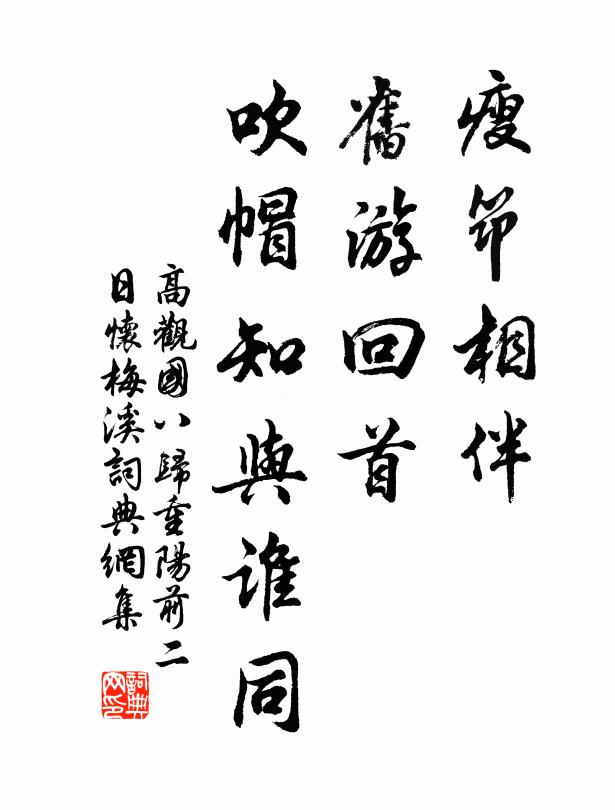 瘦筇相伴
舊游回首
吹帽知與誰同
高觀國八歸重陽前二
日懷梅溪詞典網集
詞典網印